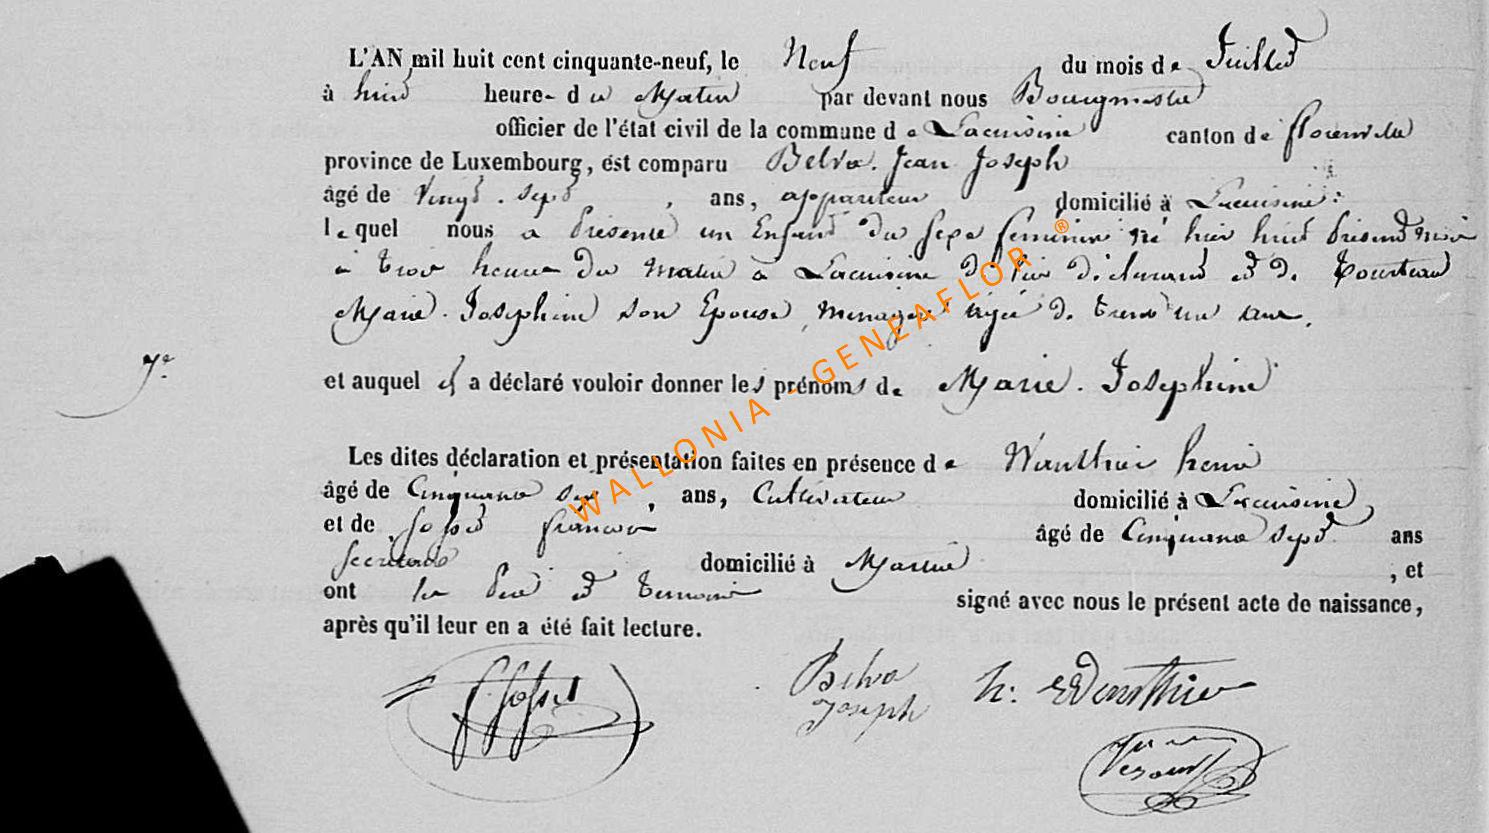 L'AN mil huit cent cinquante-neuf, le Neuf du mois de Juillet
à huit heures du Matin par devant nous Bourgmestre
officier de l'état civil de la commune de Lacuisine canton de florenville
province de Luxembourg, est comparu Belva. Jean Joseph
âgé de Vingt. sept, ans, appariteur domicilié à Lacuisine
lequel nous a présenté un Enfant du sexe feminin né hier huit présent mois
à trois heures du matin à Lacuisine de lui déclarant et de
Marie. Josephine son Epouse, menagère âgée de trente un ans,
7e
et auquel il a déclaré vouloir donner les prénoms de Marie. Josephine
Les dites déclaration et présentation faites en présence de Wauthier henri
âgé de Cinquante six, ans, Cultivateur domicilié à Lacuisine,
et de françois âgé de Cinquante sept ans
secrétaire domicilié à , et
ont les père et temoins signé avec nous le présent acte de naissance,
après qu'il leur en a été fait lecture.
Belva
Joseph
h: Wauthier
WALLONIA - GENEAFLOR ®